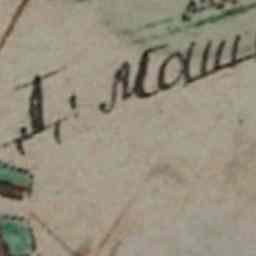 Д: Маш